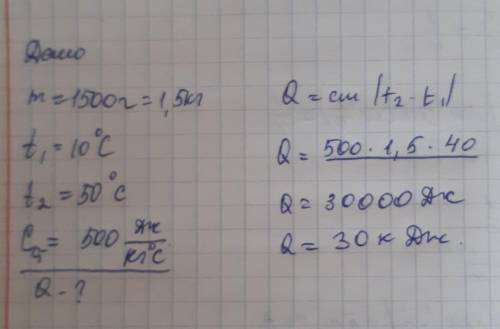 Дано
m = 1500г = 1,5кг
t₁ = 10°C
t₂ = 50°C
C = 500 Дж/кг°C
Q - ?
Q = cm |t₂ - t₁|
Q = 500 · 1,5 · 40
Q = 30000 Дж
Q = 30 к Дж.